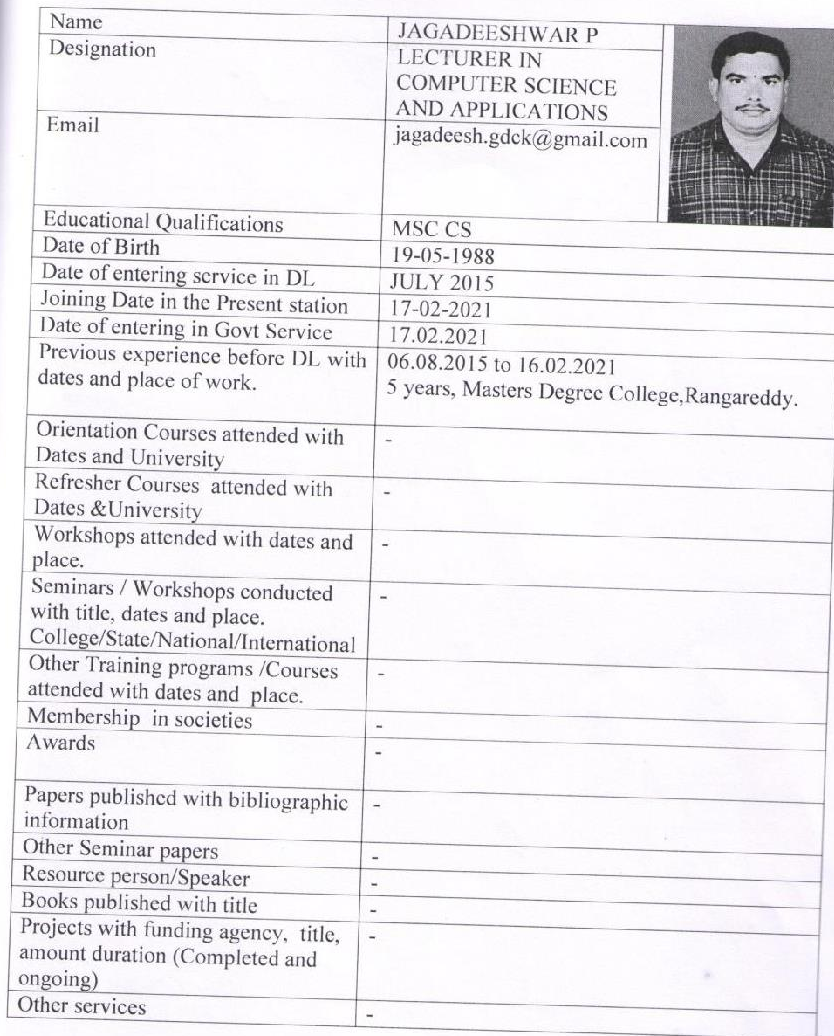 Name JAGADEESHWAR P
Designation LECTURER IN
COMPUTER SCIENCE
AND APPLICATIONS
Email jagadeesh.gdck@gmail.com
Educational Qualifications MSC CS
Date of Birth 19-05-1988
Date of entering service in DL JULY 2015
Joining Date in the Present station 17-02-2021
Date of entering in Govt Service 17.02.2021
Previous experience before DL with 06.08.2015 to 16.02.2021
dates and place of work. 5 years, Masters Degree College,Rangareddy.
Orientation Courses attended with -
Dates and University
Refresher Courses attended with -
Dates &University
Workshops attended with dates and -
place.
Seminars / Workshops conducted -
with title, dates and place.
College/State/National/International
Other Training programs /Courses -
attended with dates and place.
Membership in societies -
Awards -
Papers published with bibliographic -
information
Other Seminar papers -
Resource person/Speaker -
Books published with title -
Projects with funding agency, title, -
amount duration (Completed and
ongoing)
Other services -